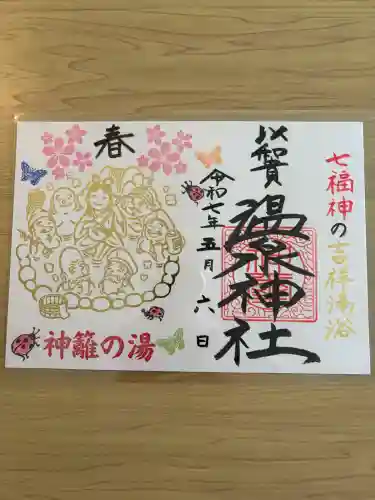 七福神の吉祥湯浴
以和賀
温泉神社
令和七年五月六日
春
神籬の湯